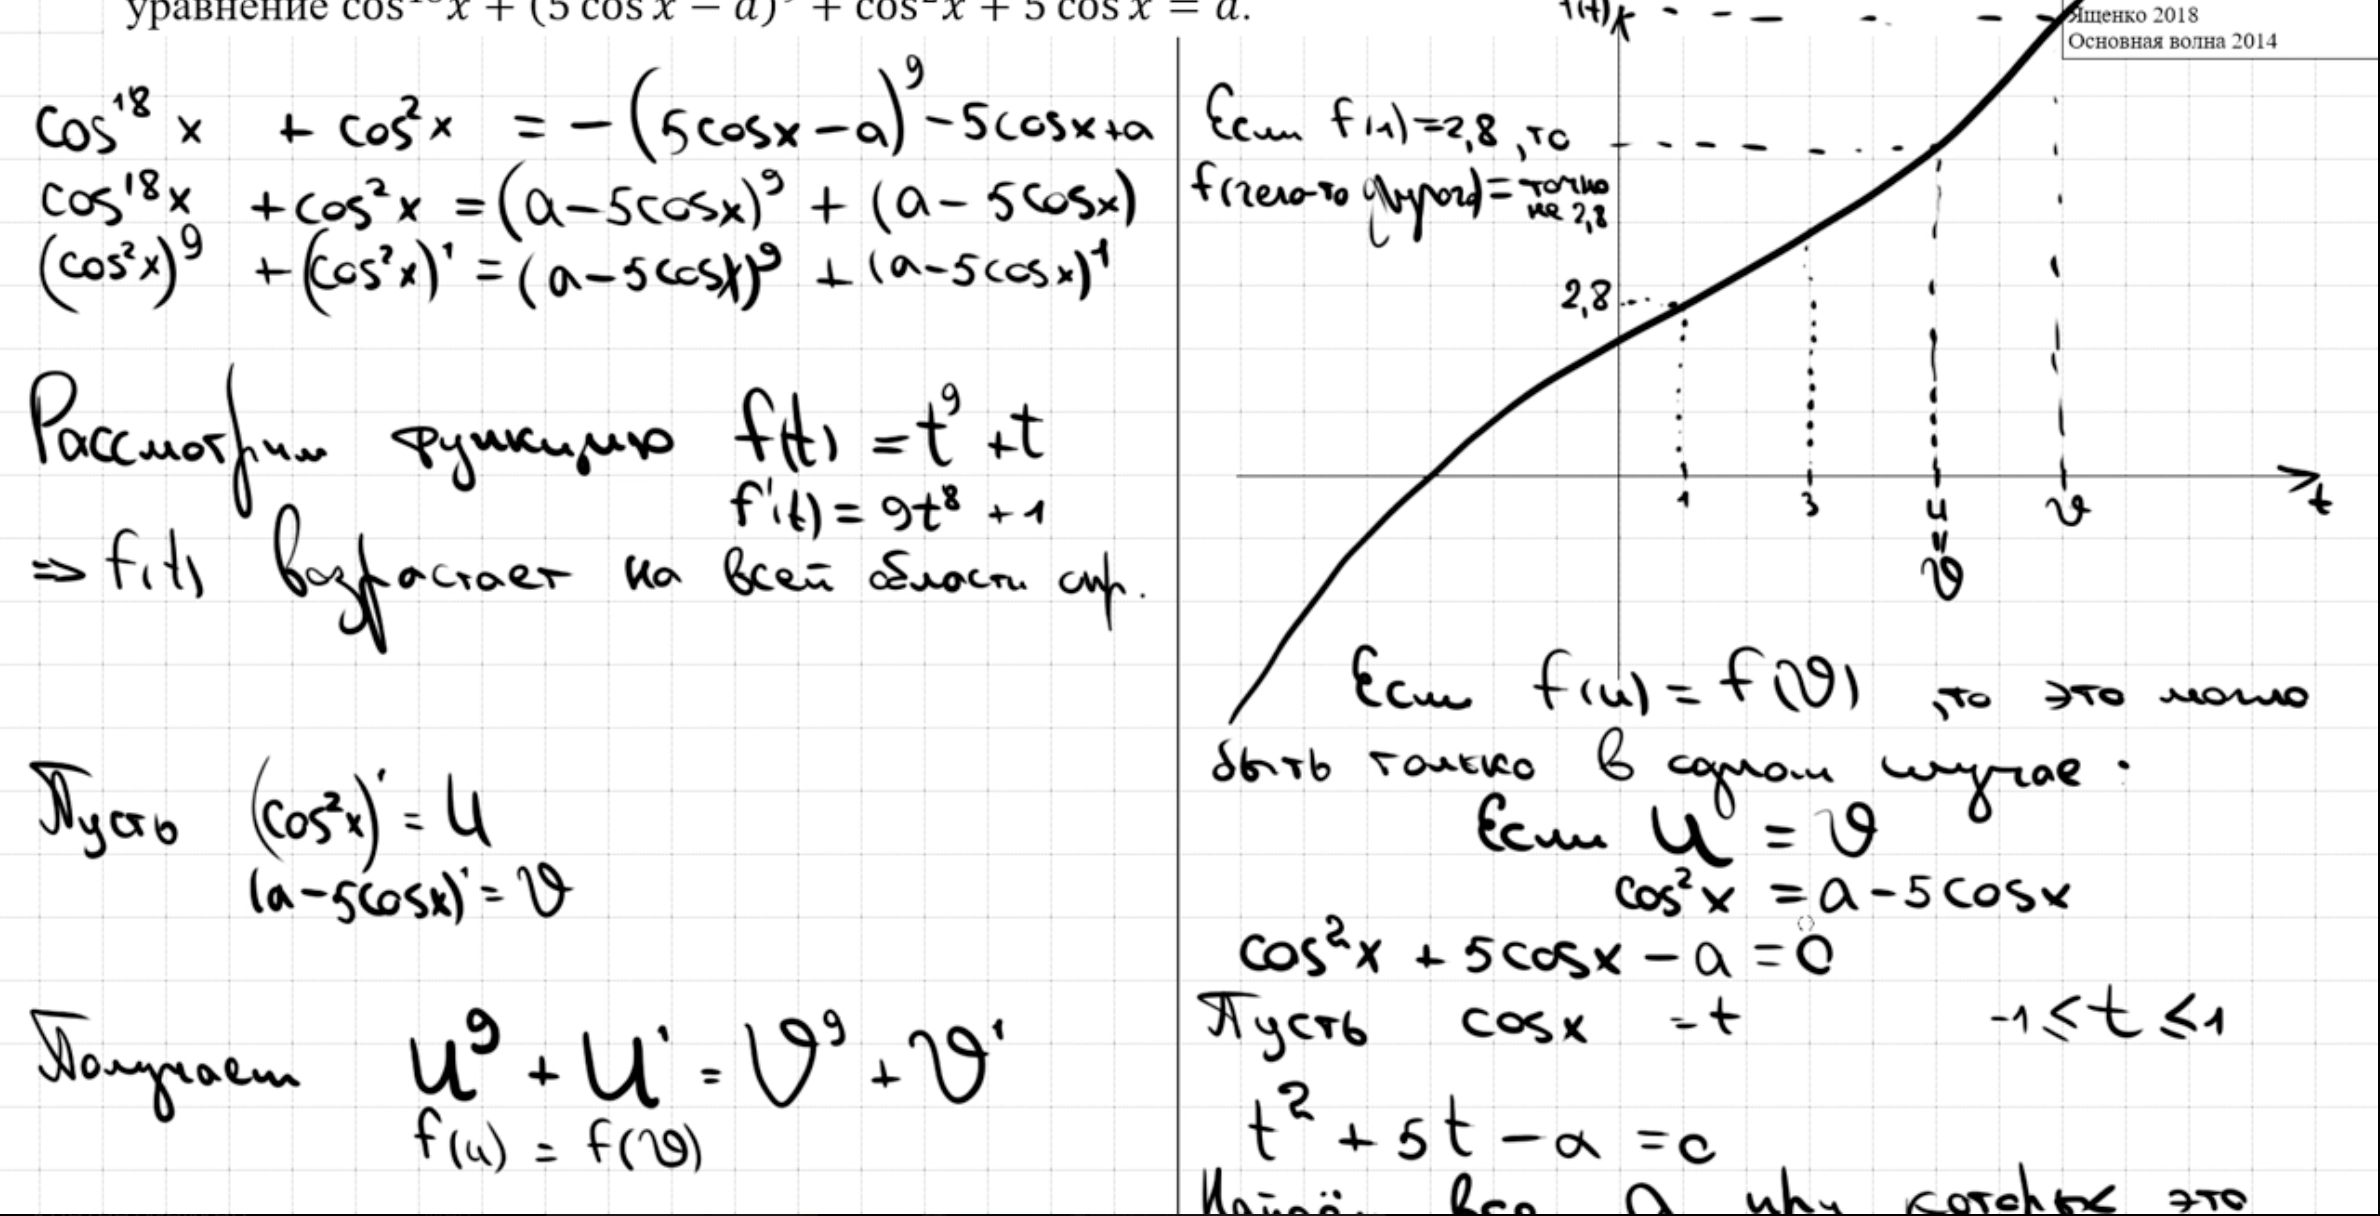 уравнение cos¹⁸x + (5 cos x − a)⁹ + cos²x + 5 cos x = a.
Ященко 2018
Основная волна 2014
cos¹⁸ x + cos²x = −(5cosx−a)⁹ −5cosx+a
cos¹⁸x + cos²x = (a−5cosx)⁹ + (a−5cosx)
(cos²x)⁹ + (cos²x)¹ = (a−5cosx)⁹ + (a−5cosx)¹
Рассмотрим функцию f(t) = t⁹ + t
f'(t) = 9t⁸ + 1
⇒ f(t) возрастает на всей области опр.
Пусть (cos²x)¹ = u
(a−5cosx)¹ = v
Получаем u⁹ + u¹ = v⁹ + v¹
f(u) = f(v)
f(t)
Если f(1)=2,8, то
f(чего-то другого) = точно
не 2,8
2,8
1 3 u v t
=
v
Если f(u) = f(v), то это могло
быть только в одном случае:
Если u = v
cos²x = a − 5cosx
cos²x + 5cosx − a = 0
Пусть cosx = t −1 ≤ t ≤ 1
t² + 5t − a = 0
Найдём все a при которых это